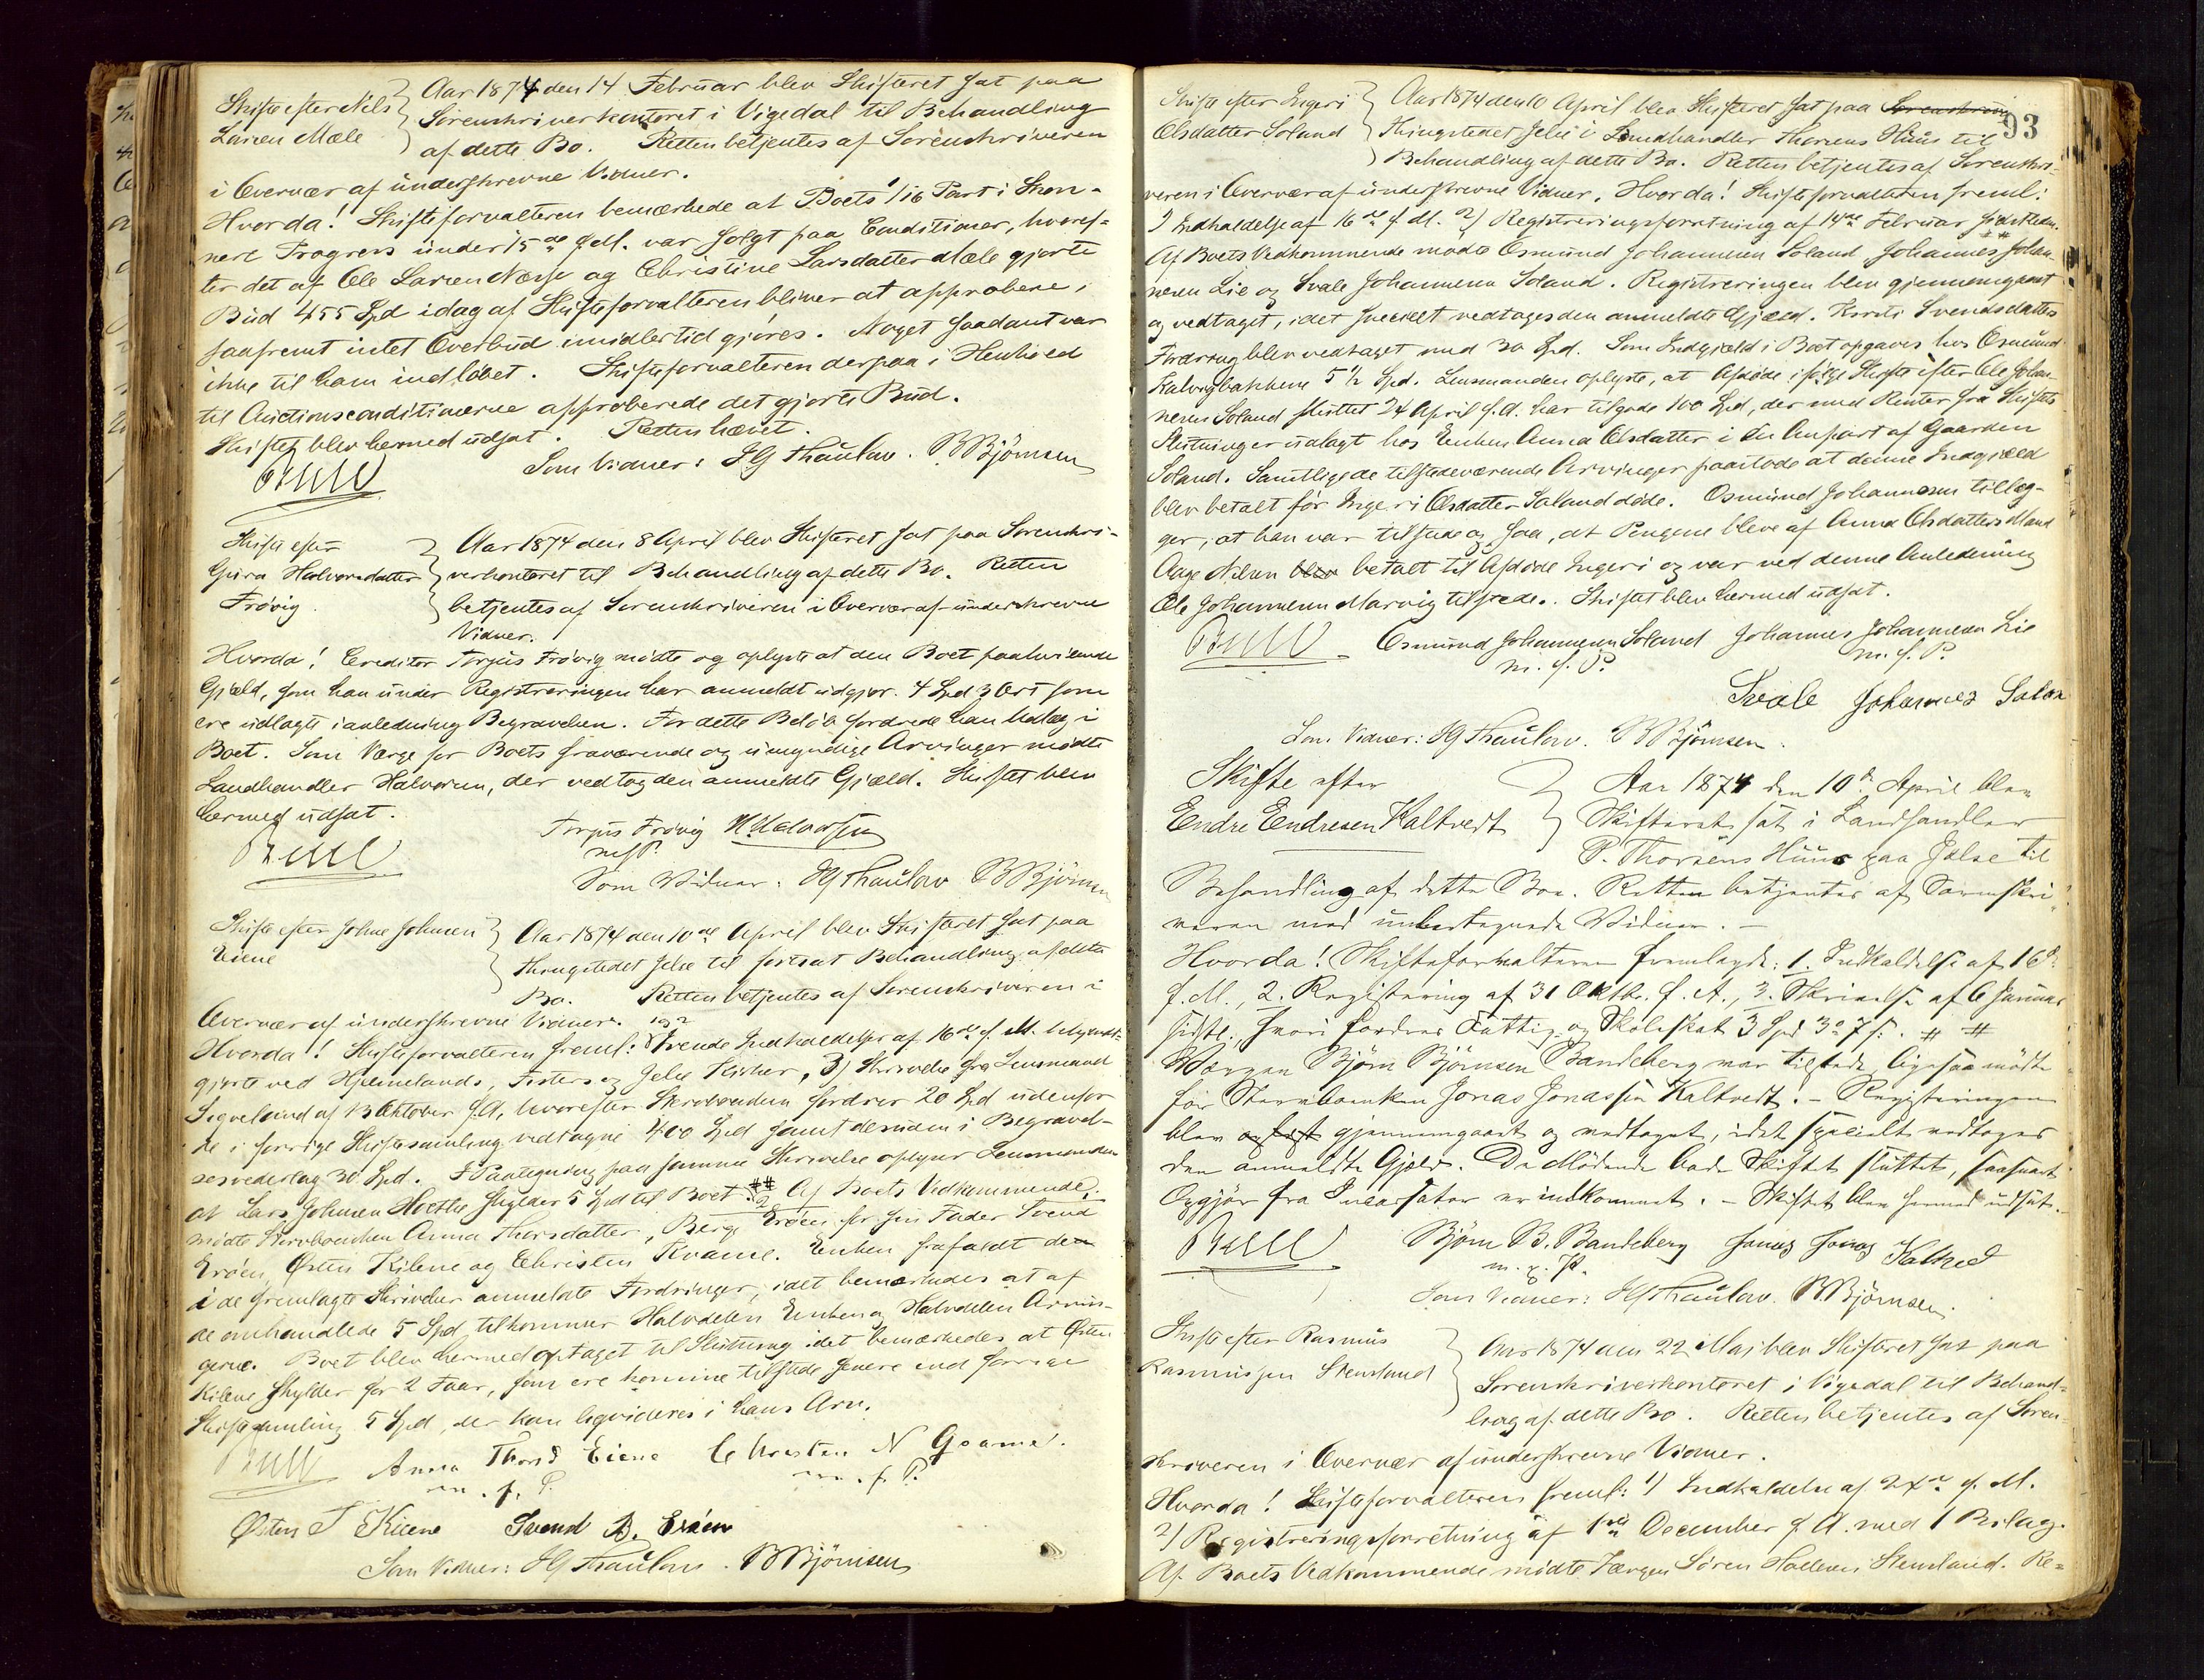 Skifte efter Nils
Larsen Mæle
Aar 1874 den 14 Februar blev Skifteret sat paa
Sorenskriverkontoret i Vigedal til Behandling
af dette Bo. Retten betjentes af Sorenskriveren
i Overvær af underskrevne Vidner.
Hvorda! Skifteforvalteren bemærkede at Boets 1/16 Part i
nert Trogres under 15de d. M. var solgt paa Conditioner, hvoref-
ter det af Ole Larsen Næsse og Christine Larsdatter Mæle gjorte
Bud 455 Spd idag af Skifteforvalteren bliver at approbere,
saafremt intet Overbud imidlertid gjöres. Noget saadant var
ikke til ham indlöbet. Skifteforvalteren derpaa i Henhold
til Auctionsconditionerne approberede det gjorte Bud.
Skiftet blev hermed udsat. Retten hævet.
Som Vidner: HG Thaulow. B Björnsen
Skifte efter
Gura Halvorsdatter
Frövig.
Aar 1874 den 8 April blev Skifteret sat paa Sorenskri-
verkontoret til Behandling af dette Bo. Retten
betjentes af Sorenskriveren i Overvær af underskrevne
Vidner.
Hvorda! Creditor Torjus Frövig mödte og oplyste at den Boet paahvilende
Gjæld, som han under Registreringen har anmeldt udgjör 4 Spd 3 Ort som
ere udlagte i anledning Begravelsen. For dette Belöb fordrede han Udlæg i
Boet. Som Værge for Boets fraværende og umyndige Arvinger mödte
Landhandler Halvorsen, der vedtog den anmeldte Gjæld. Skiftet blev
hermed udsat.
Torjus Frövig H. Halvorsen
m f P.
Som Vidner: HG Thaulow B Björnsen
Skifte efter Johne Johnsen
Eiene
Aar 1874 den 10de April blev Skifteret sat paa
Thingstedet Jelse til fortsat Behandling af dette
Bo. Retten betjentes af Sorenskriveren i
Overvær af underskrevne Vidner.
Hvorda! Skifteforvalteren freml: 1 og 2 Tvende Indkaldelser af 16de f. M. bekjendt-
gjorte ved Hjelmelands, Fisters og Jelse Kirker, 3) Skrivelse fra Lensmand
Segvelsund af 13 Oktober f. A, hvorefter Skrobonden fordrer 20 Spd udenfor
de i forrige Skiftesamling vedtagne 400 Spd samt desuden i Begravel-
sesvederlag 30 Spd. I Paategning paa samme Skrivelse oplyser Lensmanden
at Lars Johnsen Hoftte skylder 5 Spd til Boet. Af Boets Vedkommende
mödte Stervboenken Anna Thorsdatter, Berge Eröen for sin Fader Svend
Eröen, Östen Kilene og Christen Kvame. Enken frafaldt den
i de fremlagte Skrivelser anmeldte Fordringer, idet bemærkedes at af
de omhandlede 5 Spd tilkommer Halvdelen Enken og Halvdelen Arvin-
gerne. Boet blev hermed optaget til Slutning idet bemærkedes at Östen
Kilene skylder for 2 Faar, som ere komne tilstede senere end forrige
Skiftesamling 5 Spd, der kan liqvideres i hans Arv.
Anna Thorsd Eiene Chresten N Qvame.
m. f. P. m. f. P.
Östen T Kilene Svend B. Eröen
Som Vidner: HG Thaulow. B Björnsen
93
Skifte efter Ingeri
Olsdatter Soland
Aar 1874 den 10 April blev Skifteret sat paa Sorenskriver
Thingstedet Jelse i Landhandler Thorsens Huus til
Behandling af dette Bo. Retten betjentes af Sorenskri-
veren i Overvær af underskrevne Vidner. Hvorda! Skifteforvalteren freml:
1) Indkaldelse af 16de f. M. 2) Registreringsforretning af 14de Februar sidstleden.
Af Boets Vedkommende mödte Osmund Johannesen Soland, Johannes Johan-
nesen Lie og Svale Johannesen Soland. Registreringen blev gjennemgaaet
og vedtaget, idet specielt vedtages den anmeldte Gjæld. Kirsti Svendsdatters
Fordring blev vedtaget med 30 Spd. Som Indgjæld i Boet opgaves hos Osmund
Kalvigbakkene 5 1/2 Spd. Lensmanden oplyste, at Afdöde ifölge Skifte efter Ole Johan-
nesen Soland sluttet 24 April f. A. har tilgode 100 Spd, der med Renter fra Skiftets
Slutning er udlagt hos Enken Anna Olsdatter i en Anpart af Gaarden
Soland. Samtlige de tilstedeværende Arvinger paastode at denne Indgjæld
blev betalt för Ingeri Olsdatter Soland döde. Osmund Johannesen tillæg-
ger, at han var tilstede og saa, at Pengene bleve af Anna Olsdatters Mand
Aage Nilsen blev betalt til Afdöde Ingeri og var ved denne Anledning
Ole Johannesen Marvig tilstede. Skiftet blev hermed udsat.
Osmund Johannesen Soland Johannes Johannesen Lie
m. f. P. m. f. P.
Svale Johannes Solan
Som Vidner: HG Thaulow. B Björnsen.
Skifte efter
Endre Endresen Kaltvedt
Aar 1874 den 10de April blev
Skifteret sat i Landhandler
P. Thorsens Huus paa Jelse til
Behandling af dette Boe. Retten betjentes af Sorenskri-
veren med undertegnede Vidner. –
Hvorda! Skifteforvalteren fremlagde: 1. Indkaldelse af 16de
f. M., 2. Registering af 31 Oktbr. f. A., 3. Skrivelse af 6 Januar
sidstl., hvori fordres Fattig og Skoleskat 3 Spd 3 o 7 s. # #
Værgen Björn Björnsen Bandeberg var tilstede, ligesaa mödte
for Stervboenken Jonas Jonassen Kaltvedt. – Registeringen
blev gjennemgaaet og vedtaget, idet specielt vedtages
den anmeldte Gjæld. De Mödende bade Skiftet sluttet, saasnart
Opgjör fra Incassator er indkommet. – Skiftet blev hermed udsat. –
Björn B. Bandeberg Jonas Jonas Kaltved
m. p. P.
Som Vidner: HG Thaulow. B Björnsen.
Skifte efter Rasmus
Rasmussen Stensland
Aar 1874 den 22 Maj blev Skifteret sat paa
Sorenskriverkontoret i Vigedal til Behand-
ling af dette Bo. Retten betjentes af Soren-
skriveren i Overvær af underskrevne Vidner.
Hvorda! Skifteforvalteren freml: 1) Indkaldelse af f. M.
2) Registreringsforretning af 1ste December f. A. med 1 Bilag.
Af Boets Vedkommende mödte Værgen Sören Stensland. Re-